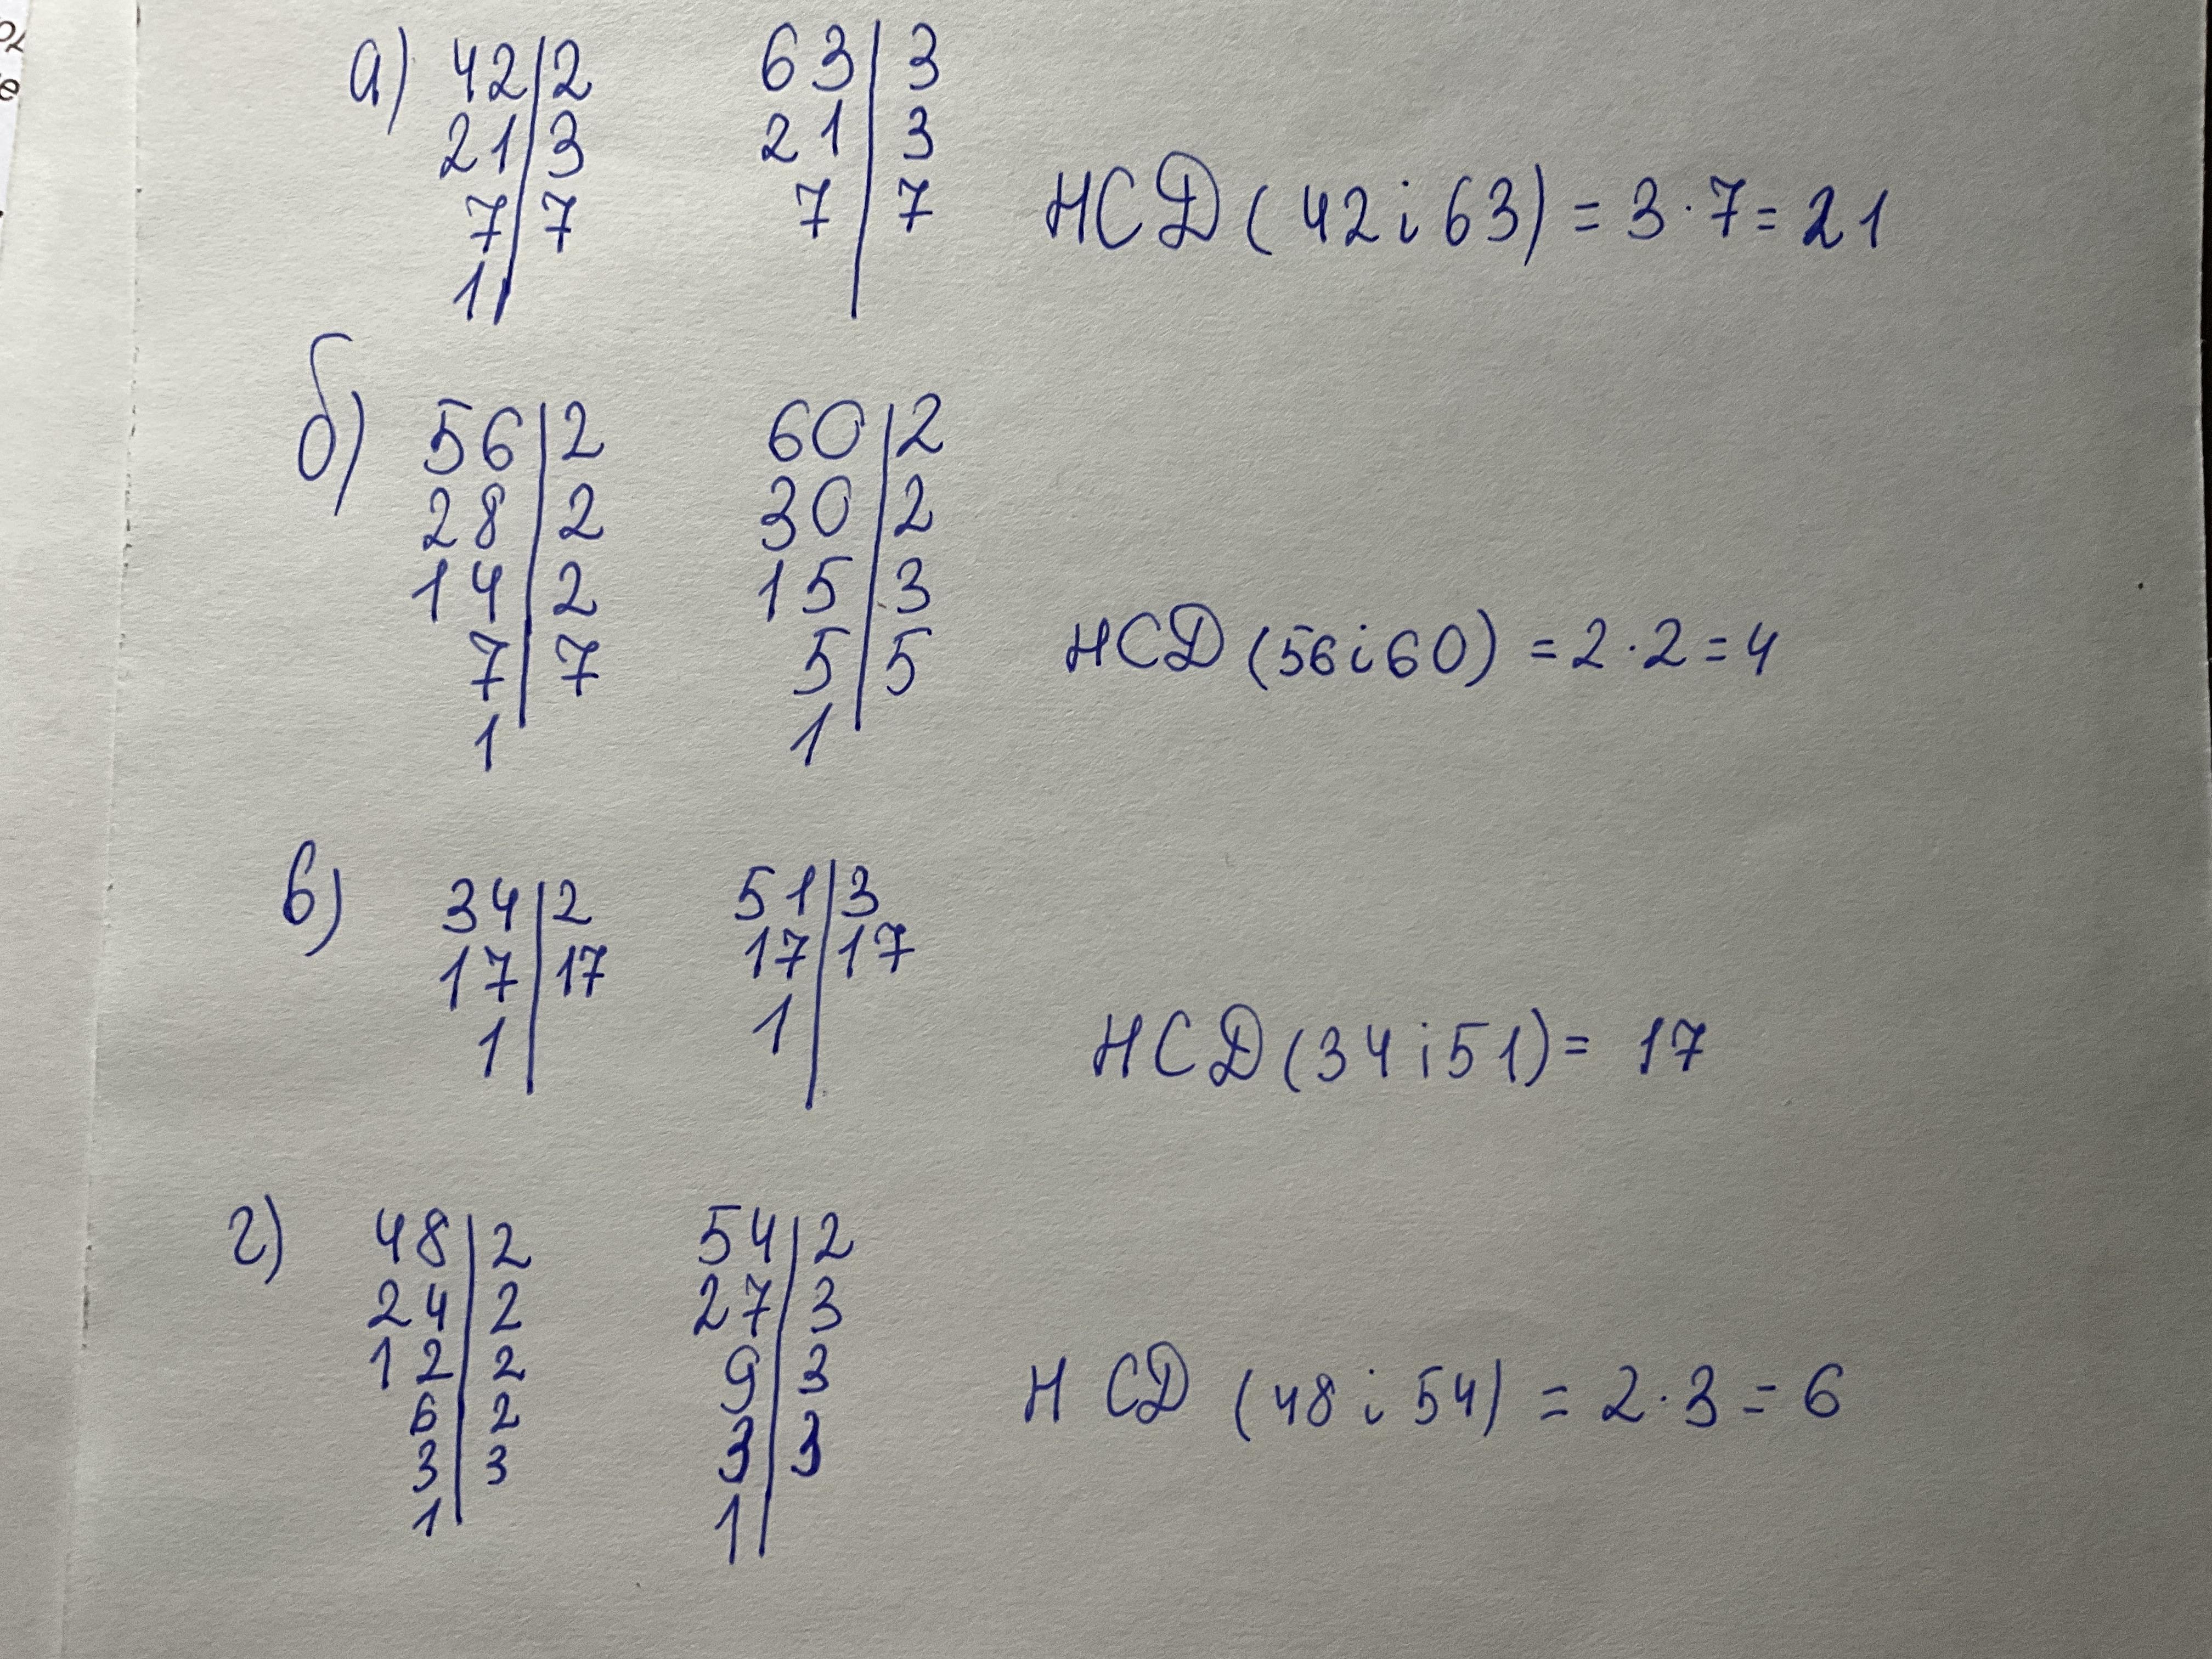 а) 42|2 63|3
21|3 21|3
7|7 7|7 НСД (42 і 63) = 3·7 = 21
1|
б) 56|2 60|2
28|2 30|2
14|2 15|3
7|7 5|5 НСД (56 і 60) = 2·2 = 4
1 1
в) 34|2 51|3
17|17 17|17
1| 1| НСД (34 і 51) = 17
г) 48|2 54|2
24|2 27|3
12|2 9|3 НСД (48 і 54) = 2·3 = 6
6|2 3|3
3|3 1|
1|